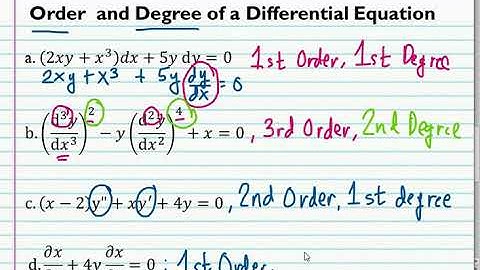 Order and Degree of a Differential Equation
a. (2xy + x³)dx + 5y dy = 0 1st Order, 1st Degree
2xy + x³ + 5y dy/dx = 0
b. (d³y/dx³)² − y (d²y/dx²)⁴ + x = 0 , 3rd Order, 2nd Degree
c. (x − 2)y" + xy' + 4y = 0 , 2nd Order, 1st degree
d. ∂x + 4y ∂x = 0 ; 1st Order,